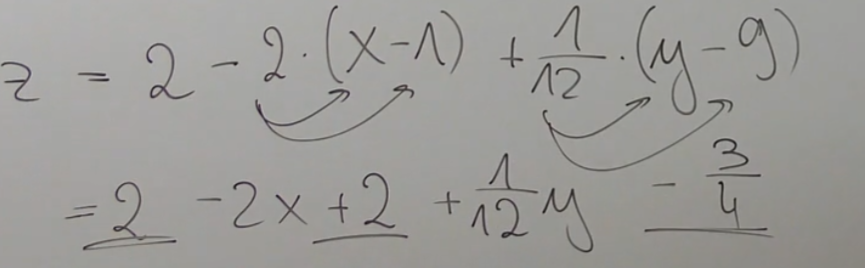 z = 2 - 2·(x-1) + 1/12·(y-9)
= 2 - 2x + 2 + 1/12 y - 3/4